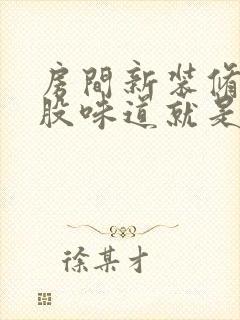 房間新裝修
股味道就是
徐某才